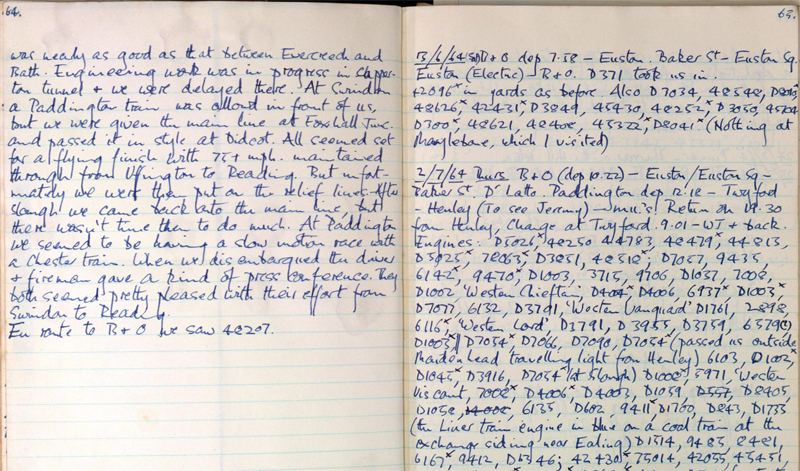 64.
was nearly as good as that between Evercreech and
Bath. Engineering work was in progress in Chipper-
ton tunnel & we were delayed there. At Swindon
a Paddington train was allowed in front of us,
but we were given the main line at Foxhall Junc.
and passed it in style at Didcot. All seemed set
for a flying finish with 75+ mph. maintained
through from Uffington to Reading. But unfort-
unately we were then put on the relief lines. After
Slough we came back onto the main line, but
there wasn't time then to do much. At Paddington
we seemed to be having a slow motion race with
a Chester train. When we disembarqued the driver
& fireman gave a kind of press conference. They
both seemed pretty pleased with their effort from
Swindon to Reading.
En route to B & O we saw 48207.
65.
13/6/64 B & O dep 7.58 – Euston. Baker St – Euston Sq.
Euston (Electric) – B & O. D371 took us in.
42096x in yards as before. Also D7034, 48542,
48626x, 42431x D3849, 45430, 48252x D3050, 45724
D700x, 48621, 48408, 45322x D8041x (Nothing at
Marylebone, which I visited)
2/7/64 Thurs. B & O (dep 10.22) – Euston/Euston Sq –
Baker St. D' Late. Paddington dep 12.18 – Twyford
– Henley (To see Jeremy) Return on 19.30
from Henley, Change at Twyford. 9.01 – WJ & back.
Engines: D5026x 48250 44783, 48479x 44813,
D5025x, 78063x D3851, 48518x, D7057, 9435,
6142x, 9470x D1003, 3715, 9706, D1037, 7002,
D1002 'Western Chieftain', D404x D4006, 6937x D1003x
D7077, 6132, D3791, 'Western Vanguard' D1761, 2898,
6116x 'Western Lord', D3791, D3955, D3759,
D1003x D7054x D7066, D7090, D7054x (passed us outside
Maidenhead travelling light from Henley) 6103, D1002x,
D1045x, D3916, D7054x (at Slough) D1002x, 5971, 'Western
Viscount, 7002x D4006x D4003, D1059, D557, D8405,
D1058, 14002, 6135, D602, 9411x D1700, D843, D1733
(the Liner train engine in blue on a coal train at the
exchange siding near Ealing) D1514, 9483, 8481,
6167x 9412, D5346; 42430x 75014, 42055, 45451,